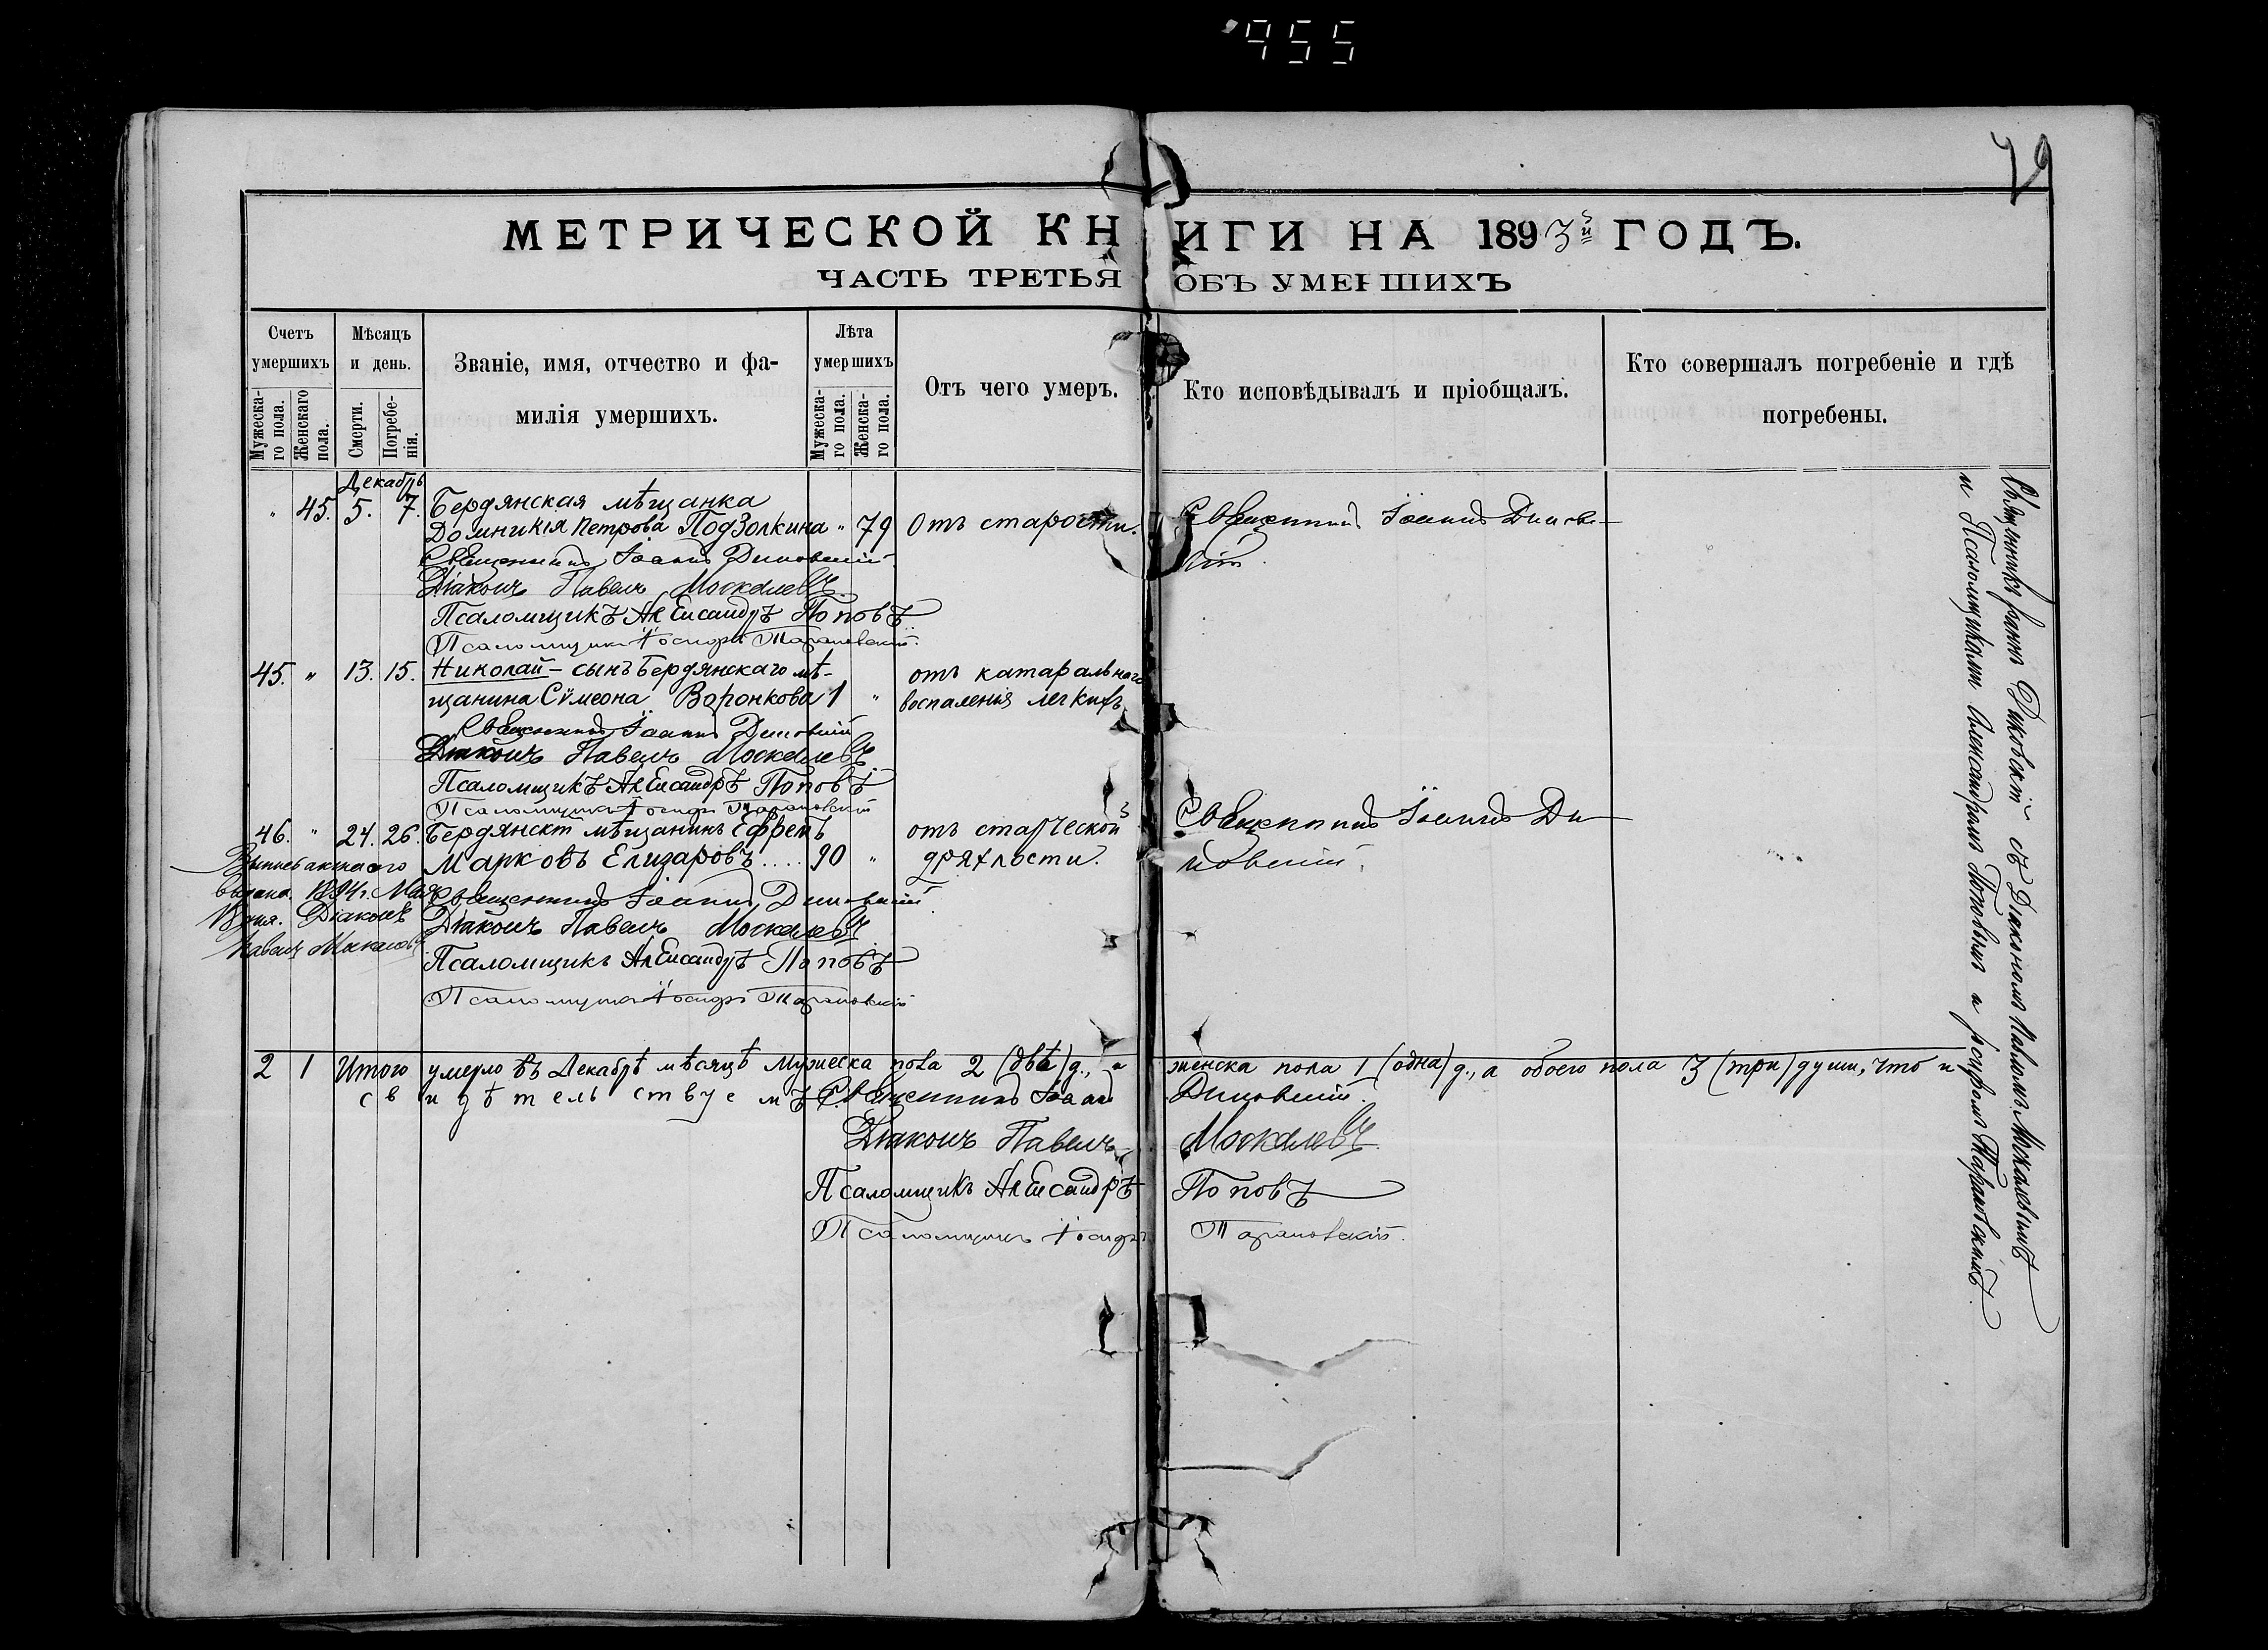 955
79
МЕТРИЧЕСКОЙ КНИГИ НА 1893й ГОДЪ.
ЧАСТЬ ТРЕТЬЯ ОБЪ УМЕРШИХЪ
Счетъ умершихъ
Мужеска-го пола.
Женскаго пола.
Мѣсяцъ и день.
Смерти.
Погребе-нія.
Званіе, имя, отчество и фа-
милія умершихъ.
Лѣта умершихъ
Мужеска-го пола.
Женска-го пола.
Отъ чего умеръ.
Кто исповѣдывалъ и пріобщалъ.
Кто совершалъ погребеніе и гдѣ
погребены.
Декабрь
" 45. 5. 7. Бердянская мѣщанка
Домникія Петрова Подзолкина " 79 Отъ старости. Священникъ Іоаннъ Диковс-
кій.
Священникъ Іоаннъ Диковскій
Діаконъ Павелъ Москалевъ
Псаломщикъ Александръ Поповъ
Псаломщикъ Іосифъ Тарановскій.
45. " 13. 15. Николай - сынъ Бердянскаго мѣ- отъ катаральнаго
щанина Сѵмеона Воронкова 1 " воспаленія легкихъ
Священникъ Іоаннъ Диковскій
Діаконъ Павелъ Москалевъ
Псаломщикъ Александръ Поповъ
Псаломщикъ Іосифъ Тарановскій
46. " 24. 26. Бердянскій мѣщанинъ Ефремъ отъ старческой Священникъ Іоаннъ Ди-
Марковъ Елизаровъ.... 90 " дряхлости. ковскій.
выдана 1894г. Мая
Діаконъ
Павелъ Москалевъ
Священникъ Іоаннъ Диковскій
Діаконъ Павелъ Москалевъ
Псаломщикъ Александръ Поповъ
Псаломщикъ Іосифъ Тарановскій
2 1 Итого умерло въ Декабрѣ мѣсяцѣ мужеска пола 2 (двѣ) д., и женска пола 1 (одна) д., а обоего пола 3 (три) души, что и
свидѣтельствуемъ Священникъ Іоаннъ Диковскій.
Діаконъ Павелъ Москалевъ.
Псаломщикъ Александръ Поповъ
Псаломщикъ Іосифъ Тарановскій.
Священникъ Іоаннъ Диковскій съ Діакономъ Павломъ Москалевымъ
и Псаломщиками Александромъ Поповымъ и Іосифомъ Тарановскимъ.